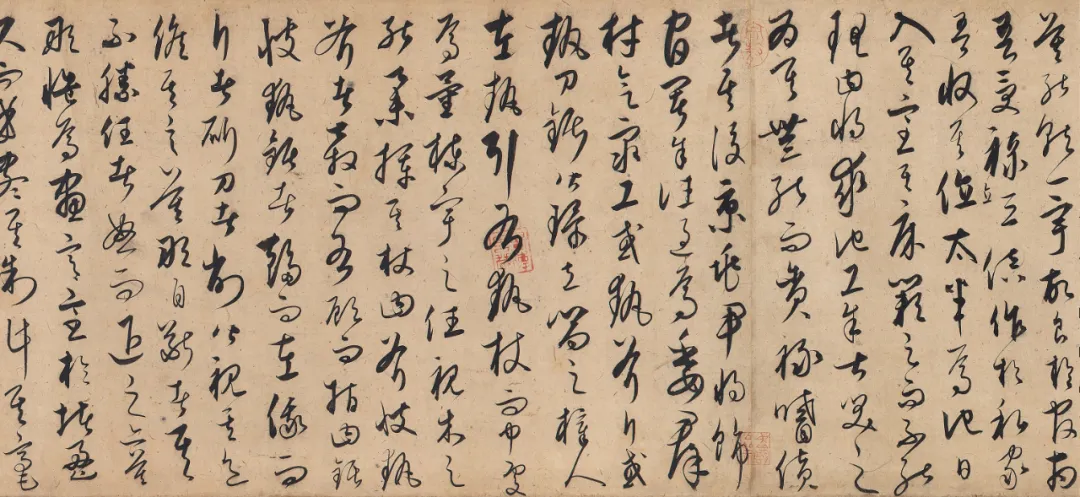 莫能就一宇故食於官府
吾受祿三倍作於私家
吾收其值太半焉他日
入其室其床闕足而不能
理曰將求他工余甚笑之
謂其無能而貪祿嗜貨
者其後京兆尹將飾
官署余往過焉委群
材會眾工或執斧斤或
執刀鋸皆環立嚮之梓人
左執引右執杖而中處
焉量棟宇之任視木之
能舉揮其杖曰斧彼執
斧者奔而右顧而指曰鋸
彼執鋸者趨而左俄而
斤者斲刀者削皆視其色
俟其言莫敢自斷者其
不勝任者怒而退之亦莫
敢慍焉畫宮於堵盈
尺而曲盡其制計其毫